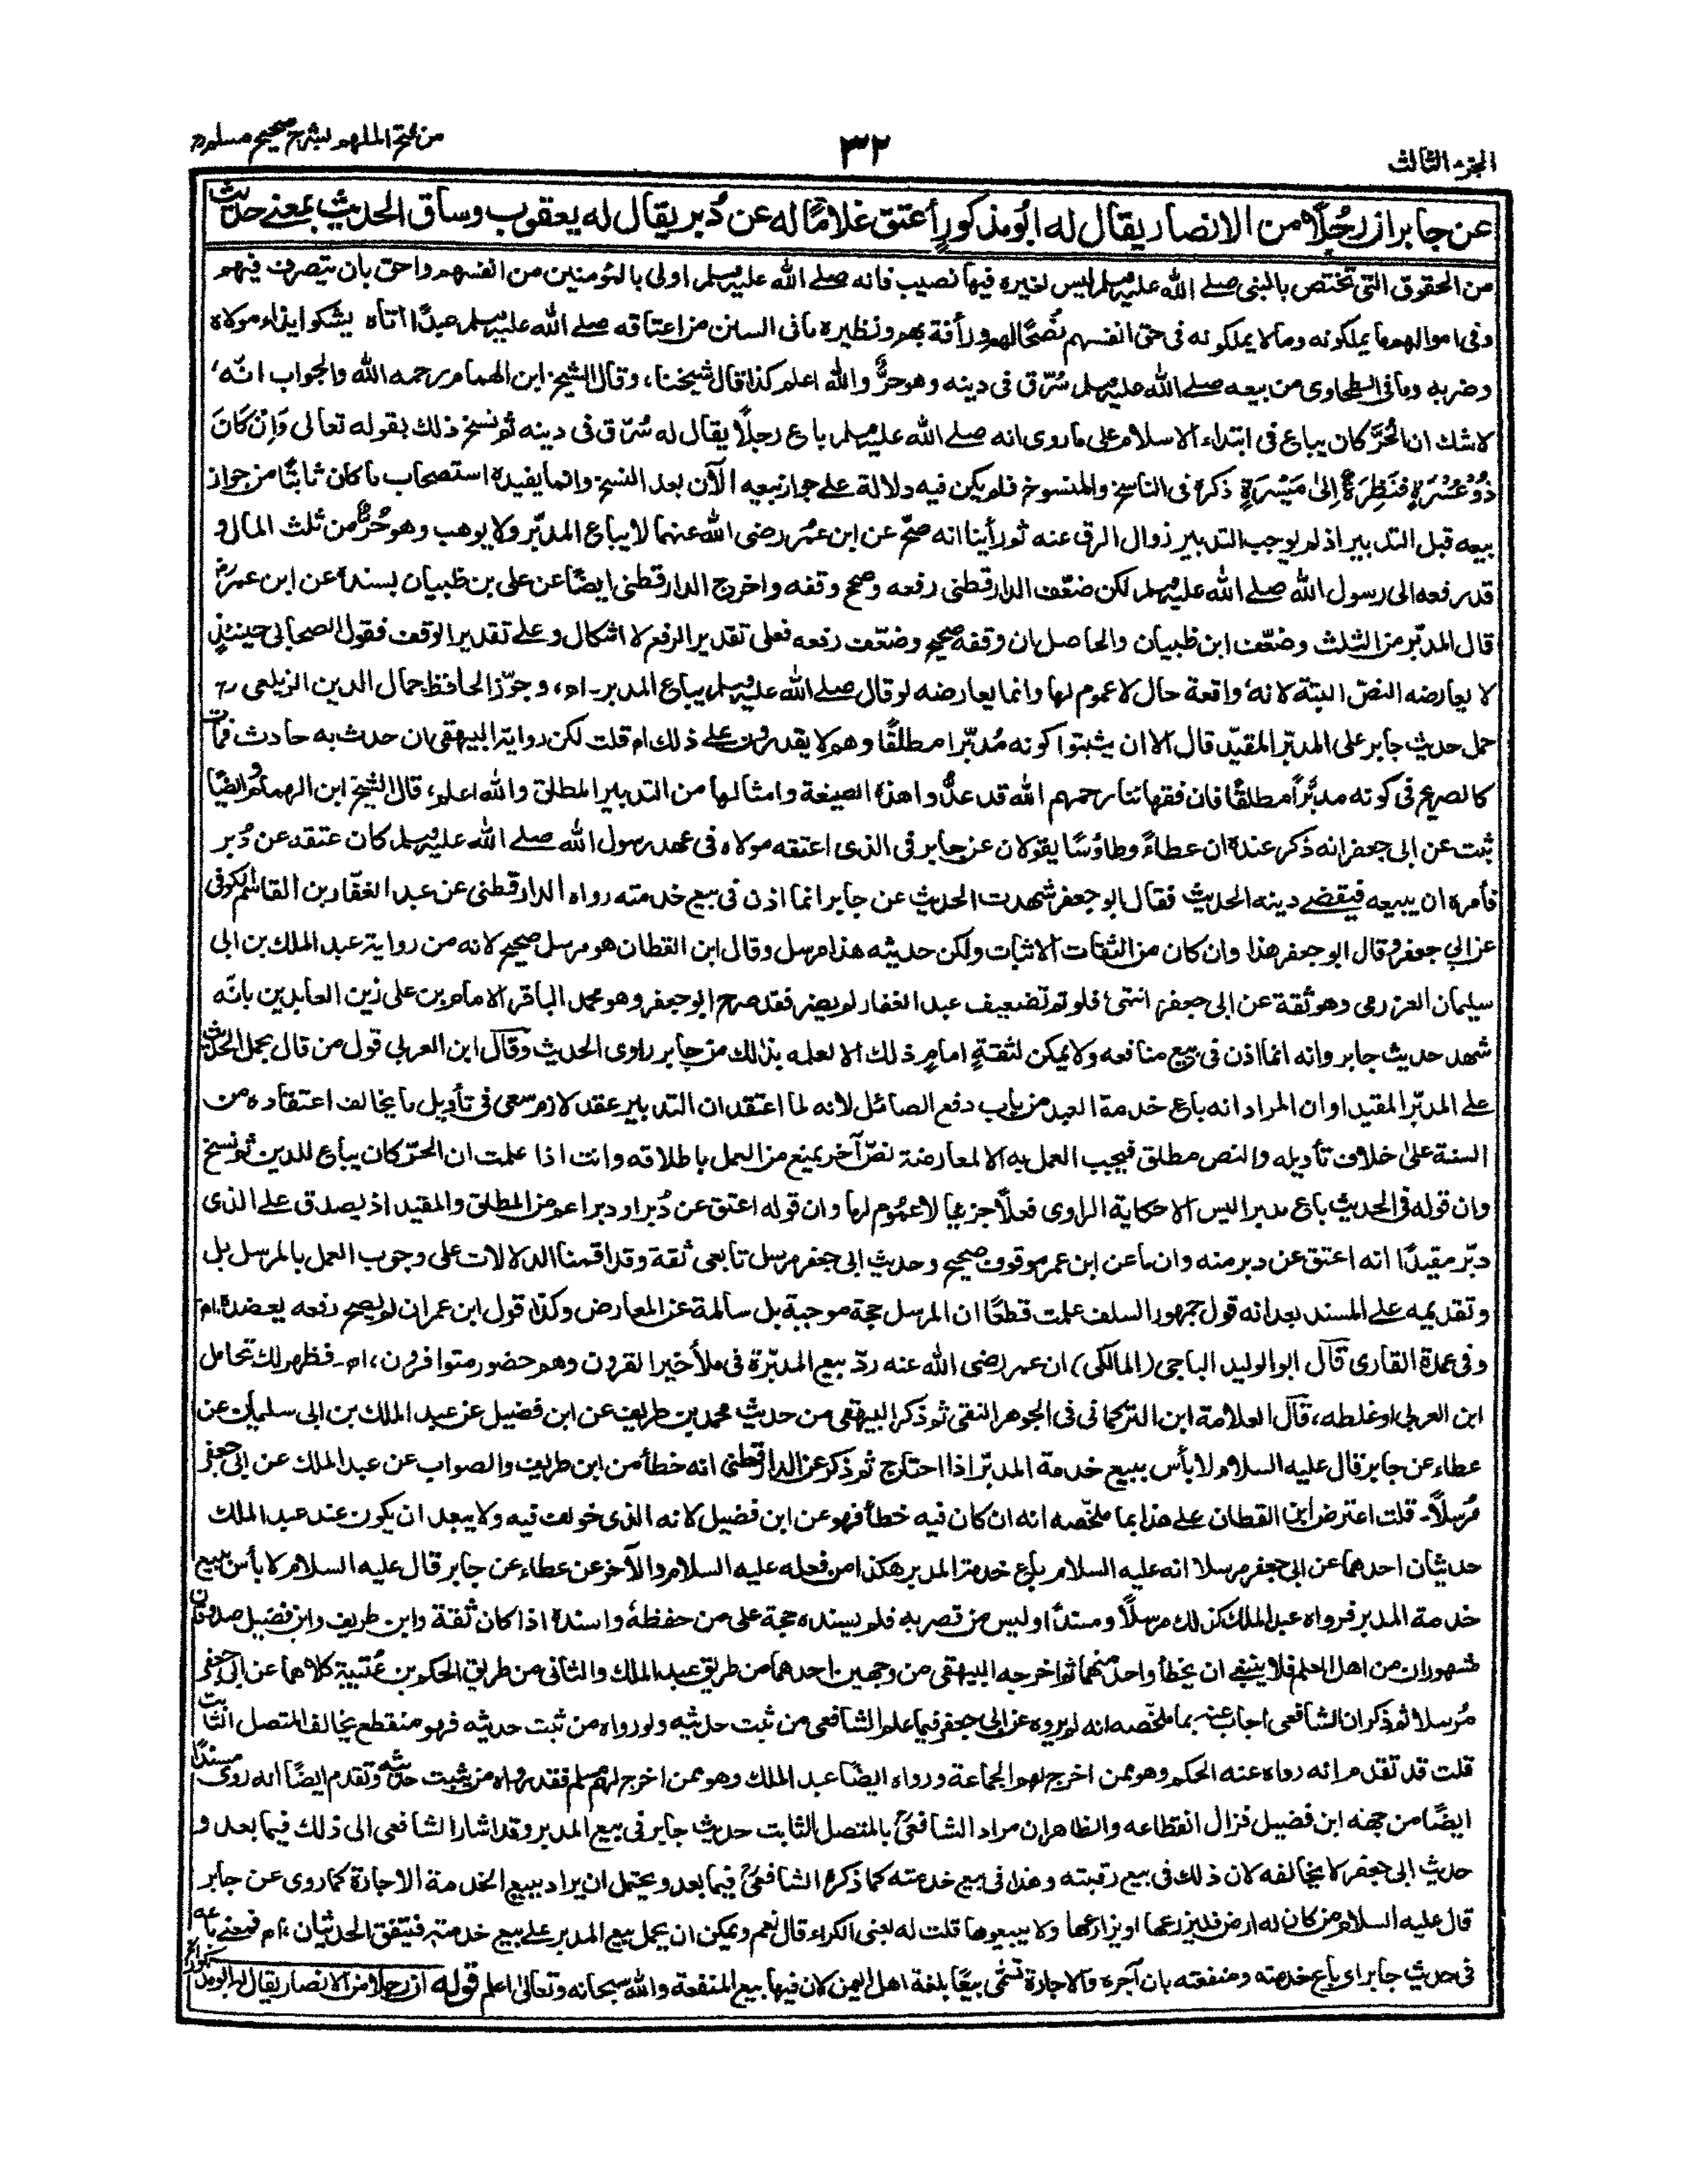 الجزء الثالث
٣٢
من فتح الملهم لشرح صحيح مسلم
عن جابر ان رجلًا من الانصار يقال له ابُو مذكور أعتق غلامًا له عن دُبر يقال له يعقوب وساق الحديث بمعنى حديث
من الحقوق التى تختص بالنبى صلے الله عليه وسلم ليس لغيره فيها نصيب فانه صلے الله عليه وسلم اولى بالمؤمنين من انفسهم واحق بان يتصرف فيهم
وفى اموالهم ما يملكونه وما لا يملكونه فى حق انفسهم نُصحًا لهم ورأفة بهم ونظيره ما فى السنن من اعتاقه صلے الله عليه وسلم عبدًا اتاه يشكو ايذاء مولاه
وضربه وما فى الطحاوى من بيعه صلے الله عليه وسلم سُرّق فى دينه وهو حرٌّ والله اعلم كذا قال شيخنا، وقال الشيخ ابن الهمام رحمه الله والجواب انّه
لا شك ان الحُرَّ كان يباع فى ابتداء الاسلام على ما روى انه صلے الله عليه وسلم باع رجلًا يقال له سُرّق فى دينه ثم نسخ ذلك بقوله تعالى وَاِنْ كَانَ
ذُوْ عُسْرَةٍ فَنَظِرَةٌ اِلىٰ مَيْسَرَةٍ ذكره فى الناسخ والمنسوخ فلم يكن فيه دلالة على جواز بيعه الآن بعد النسخ وانما يفيده استصحاب ما كان ثابتًا من جواز
بيعه قبل التدبير اذ لم يوجب التدبير زوال الرق عنه ثم رأينا انه صحّ عن ابن عمر رضى الله عنهما لا يباع المدبّر ولا يوهب وهو حُرٌّ من ثلث المال و
قد رفعه الى رسول الله صلے الله عليه وسلم لكن ضعّف الدارقطنى رفعه وصحح وقفه واخرج الدارقطنى ايضًا عن على بن ظبيان بسنده عن ابن عمر رض
قال المدبّر من الثلث وضعّف ابن ظبيان والحاصل ان وقفه صحيح وضعّف رفعه فعلى تقدير الرفع لا اشكال وعلے تقدير الوقف فقول الصحابى حينئذٍ
لا يعارضه النصّ البتة لانه واقعة حال لا عموم لها وانما يعارضه لو قال صلے الله عليه وسلم يباع المدبر - اھ، وجوّز الحافظ جمال الدين الزيلعى رح
حمل حديث جابر على المدبّر المقيّد قال الا ان يثبتوا كونه مُدبّرا مطلقًا وهم لا يقدرون علے ذلك اھ قلت لكن رواية البيهقى ان حدث به حادث فمات
كالصريح فى كونه مدبَّراً مطلقًا فان فقهائنا رحمهم الله قد عدُّوا هذه الصيغة وامثالها من التدبير المطلق والله اعلم، قال الشيخ ابن الهمام وايضًا
ثبت عن ابى جعفر انه ذكر عنده ان عطاءً وطاؤسًا يقولان عن جابر فى الذى اعتقه مولاه فى عهد رسول الله صلے الله عليه وسلم كان عتقه عن دُبر
فأمره ان يبيعه فيقضے دينه الحديث فقال ابو جعفر شهدت الحديث عن جابر انما اذن فى بيع خدمته رواه الدارقطنى عن عبد الغفّار بن القاسم الكوفى
عن ابي جعفر وقال ابو جعفر هذا وان كان من الثقات الاثبات ولكن حديثه هذا مرسل وقال ابن القطان هو مرسل صحيح لانه من رواية عبد الملك بن ابى
سليمان العزرمى وهو ثقة عن ابى جعفر، انتهى فلو تم تضعيف عبد الغفار لم يضر فقد صرح ابو جعفر وهو محمد الباقر الامام بن على زين العابدين بانّه
شهد حديث جابر وانه انما اذن فى بيع منافعه ولا يمكن لثقةٍ امامٍ ذلك الا لعلمه بذلك من جابر راوى الحديث وقال ابن العربى قول من قال يحمل الحديث
علے المدبّر المقيد او ان المراد انه باع خدمة العبد من باب دفع الصائل لانه لما اعتقد ان التدبير عقد لازم سعى فى تأويل ما يخالف اعتقاده من
السنة علىٰ خلاف تأويله والنص مطلق فيجب العمل به الا لمعارضة نصّ آخر يمنع من العمل باطلاقه وانت اذا علمت ان الحرّ كان يباع للدين ثم نسخ
وان قوله فى الحديث باع مدبرا ليس الا حكاية الراوى فعلًا جزئيا لا عموم لها وان قوله اعتق عن دُبر او دبر اعم من المطلق والمقيد اذ يصدق علے الذى
دبّر مقيدًا انه اعتق عن دبر منه وان ما عن ابن عمر موقوف صحيح وحديث ابى جعفر مرسل تابعى ثقة وقد اقمنا الدلالات على وجوب العمل بالمرسل بل
وتقديمه علے المسند بعد انه قول جمهور السلف علمت قطعًا ان المرسل حجة موجبة بل سالمة عن المعارض وكذا قول ابن عمر ان لم يصح رفعه يعضده، اھ
وفى عمدة القارى قال ابو الوليد الباجى (المالكى) ان عمر رضى الله عنه ردّ بيع المدبّرة فى ملأ خير القرون وهم حضور متوافرون، اھ - فظهر لك تحامل
ابن العربى او غلطه، قال العلامة ابن التركمانى فى الجوهر النقى ثم ذكر البيهقى من حديث محمد بن طريف عن ابن فضيل عن عبد الملك بن ابى سليمان عن
عطاء عن جابر قال عليه السلام لا بأس ببيع خدمة المدبّر اذا احتاج ثم ذكر عن الدارقطنى انه خطأ من ابن طريف والصواب عن عبد الملك عن ابى جعفر
مُرسلًا - قلت اعترض ابن القطان علے هذا بما ملخّصه انه ان كان فيه خطأ فهو عن ابن فضيل لانه الذى خولف فيه ولا يبعد ان يكون عند عبد الملك
حديثان احدهما عن ابى جعفر مرسلا انه عليه السلام باع خدمة المدبر هكذا من فعله عليه السلام والآخر عن عطاء عن جابر قال عليه السلام لا بأس ببيع
خدمة المدبر فرواه عبد الملك كذلك مرسلًا ومسندًا وليس من قصر به فلم يسنده حجة على من حفظه واسنده اذا كان ثقة وابن طريف وابن فضيل صدوقان
مشهوران من اهل العلم فلا ينبغى ان يخطأ واحد منهما ثم اخرجه البيهقى من وجهين احدهما من طريق عبد الملك والثانى من طريق الحكم بن عُتيبة كلاهما عن ابى جعفر
مُرسلا ثم ذكر ان الشافعى اجاب عنه بما ملخّصه انه لم يروه عن ابى جعفر فيما علم الشافعى من ثبت حديثه ولو رواه من ثبت حديثه فهو منقطع يخالف المتصل الثابت
قلت قد تقدم انه رواه عنه الحكم وهو ممن اخرج لهم الجماعة ورواه ايضًا عبد الملك وهو ممن اخرج لهم مسلم فقد رواه من يثبت حديثه وتقدم ايضًا انه روى مسندًا
ايضًا من جهة ابن فضيل فزال انقطاعه والظاهر ان مراد الشافعىؒ بالمتصل الثابت حديث جابر فى بيع المدبر وقد اشار الشافعى الى ذلك فيما بعد و
حديث ابى جعفر لا يخالفه لان ذلك فى بيع رقبته وهذا فى بيع خدمته كما ذكره الشافعىؒ فيما بعد ويحتمل ان يراد ببيع الخدمة الاجارة كما روى عن جابر
قال عليه السلام من كان له ارض فليزرعها او يزارعها ولا يبيعوها قلت له يعنى الكراء قال نعم ويمكن ان يحمل بيع المدبر علے بيع خدمته فيتفق الحديثان، اھ فمعنى باعه
فى حديث جابر اى باع خدمته ومنفعته بان آجره والاجارة تسمّى بيعًا بلغة اهل اليمن لان فيها بيع المنفعة والله سبحانه وتعالىٰ اعلم قوله ان رجلا من الانصار يقال له ابو مذكور الخ